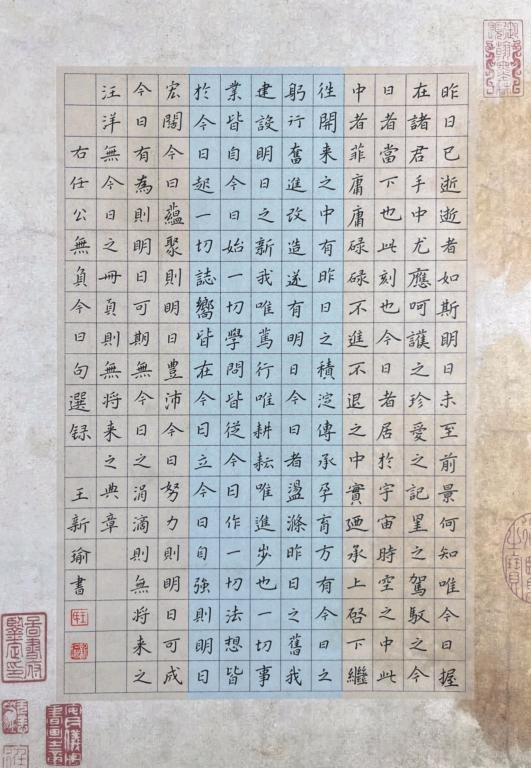 昨日已逝逝者如斯明日未至前景何知唯今日握
在諸君手中尤應呵護之珍愛之記星之駕馭之今
日者當下也此刻也今日者居於宇宙時空之中此
中者菲庸庸碌碌不進不退之中實廼承上啓下繼
徃開来之中有昨日之積淀傳承孕育方有今日之
躬行奮進改造遂有明日今日者盪滌昨日之舊我
建設明日之新我唯篤行唯耕耘唯進步也一切事
業皆自今日始一切學問皆從今日作一切法想皆
於今日起一切誌嚮皆在今日立今日自強則明日
宏闊今日蘊聚則明日豐沛今日努力則明日可成
今日有為則明日可期無今日之涓滴則無將来之
汪洋無今日之冊頁則無將来之典章
右任公無負今日句選録 王新瑜書